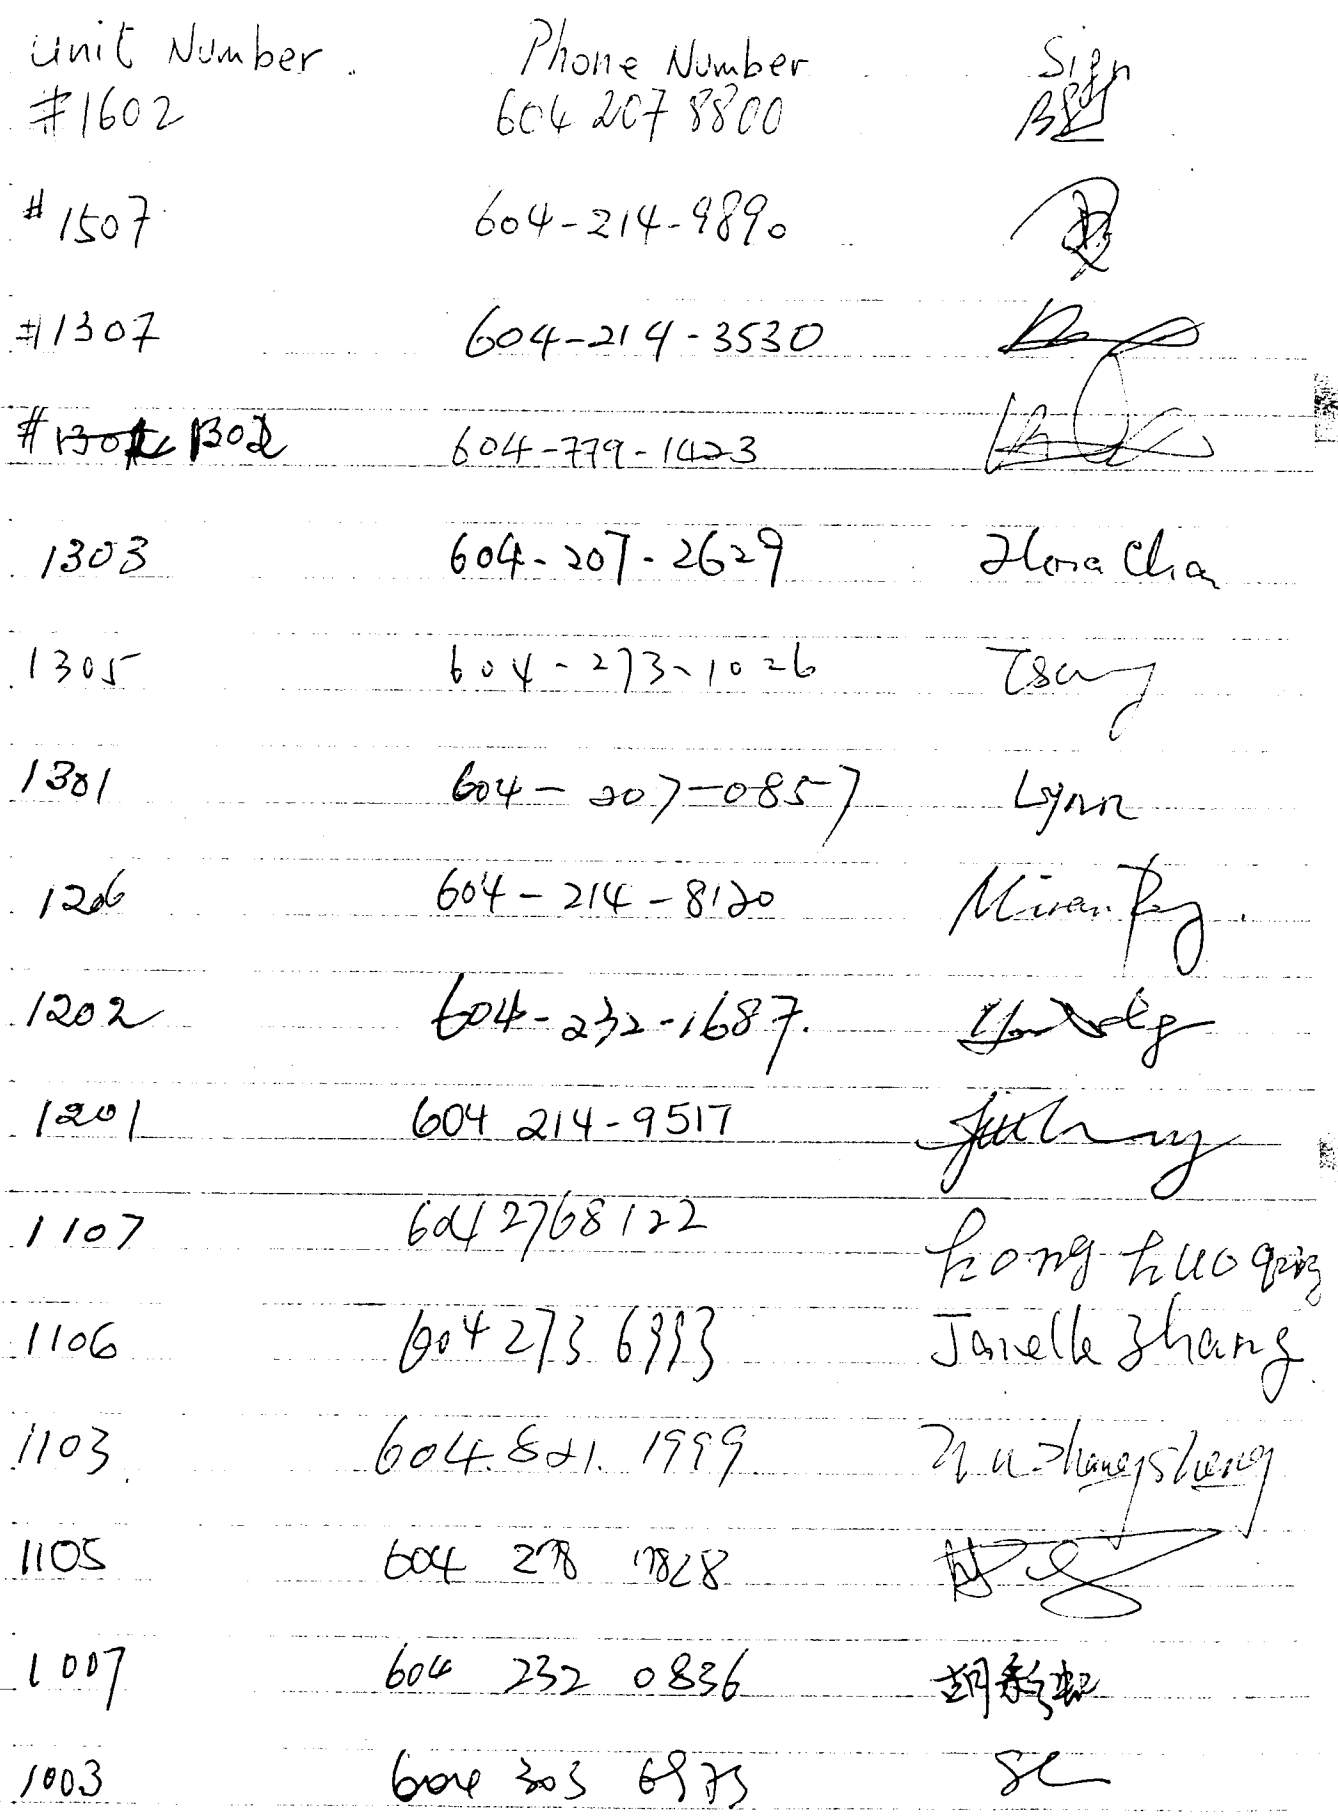 Unit Number. Phone Number Sign
#1602 604 207 8800
#1507 604-214-9890
#1307 604-214-3530
#1302 1302 604-779-1423
1303 604-207-2629
1305 604-273-1026 Tsang
1301 604-207-0857 Lynn
1206 604-214-8120
1202 604-232-1687.
1201 604 214-9517
1107 604 2768122
1106 604 273 6993 Janelle Zhang
1103 604.821.1999
1105 604 278 1828
1007 604 232 0836
1003 604 303 6973